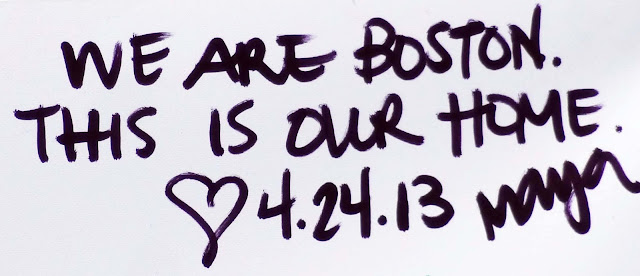 WE ARE BOSTON.
THIS IS OUR HOME.
♡ 4.24.13 maya